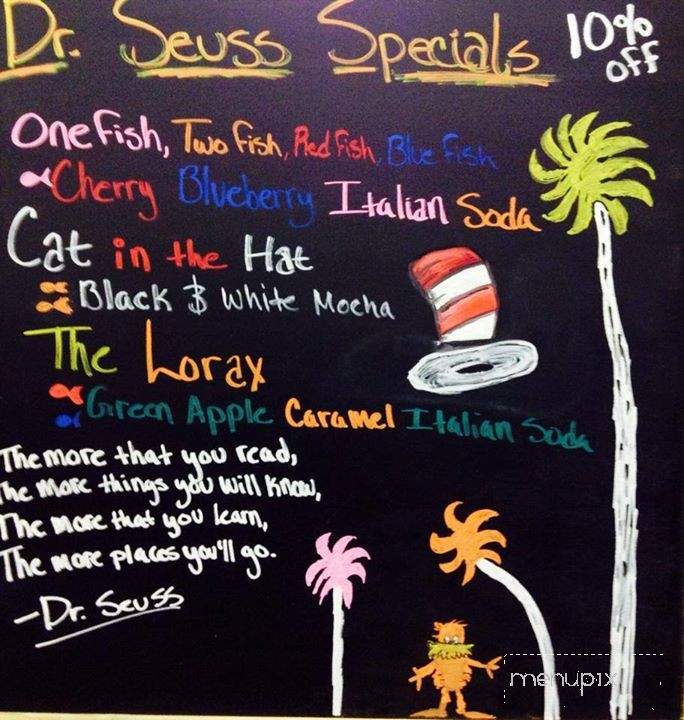 Dr. Seuss Specials 10% off
One Fish, Two Fish, Red Fish, Blue Fish
Cherry Blueberry Italian Soda
Cat in the Hat
Black & White Mocha
The Lorax
Green Apple Caramel Italian Soda
The more that you read,
The more things you will know,
The more that you learn,
The more places you'll go.
-Dr. Seuss
menupix